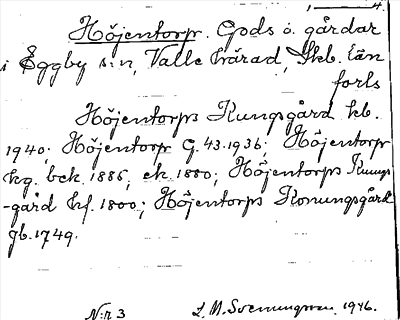 Höjentorp. Gods o. gårdar
i Eggby s:n, Valle härad, Skb. län
forts
Höjentorps Kungsgård kb.
1940; Höjentorp G. 43. 1936; Höjentorp
kg. bek. 1886, ek. 1880; Höjentorps Kungs
-gård hf. 1800; Höjentorps Konungsgård
gb. 1749.
N:r 3 L. M. Svenungsson, 1946.